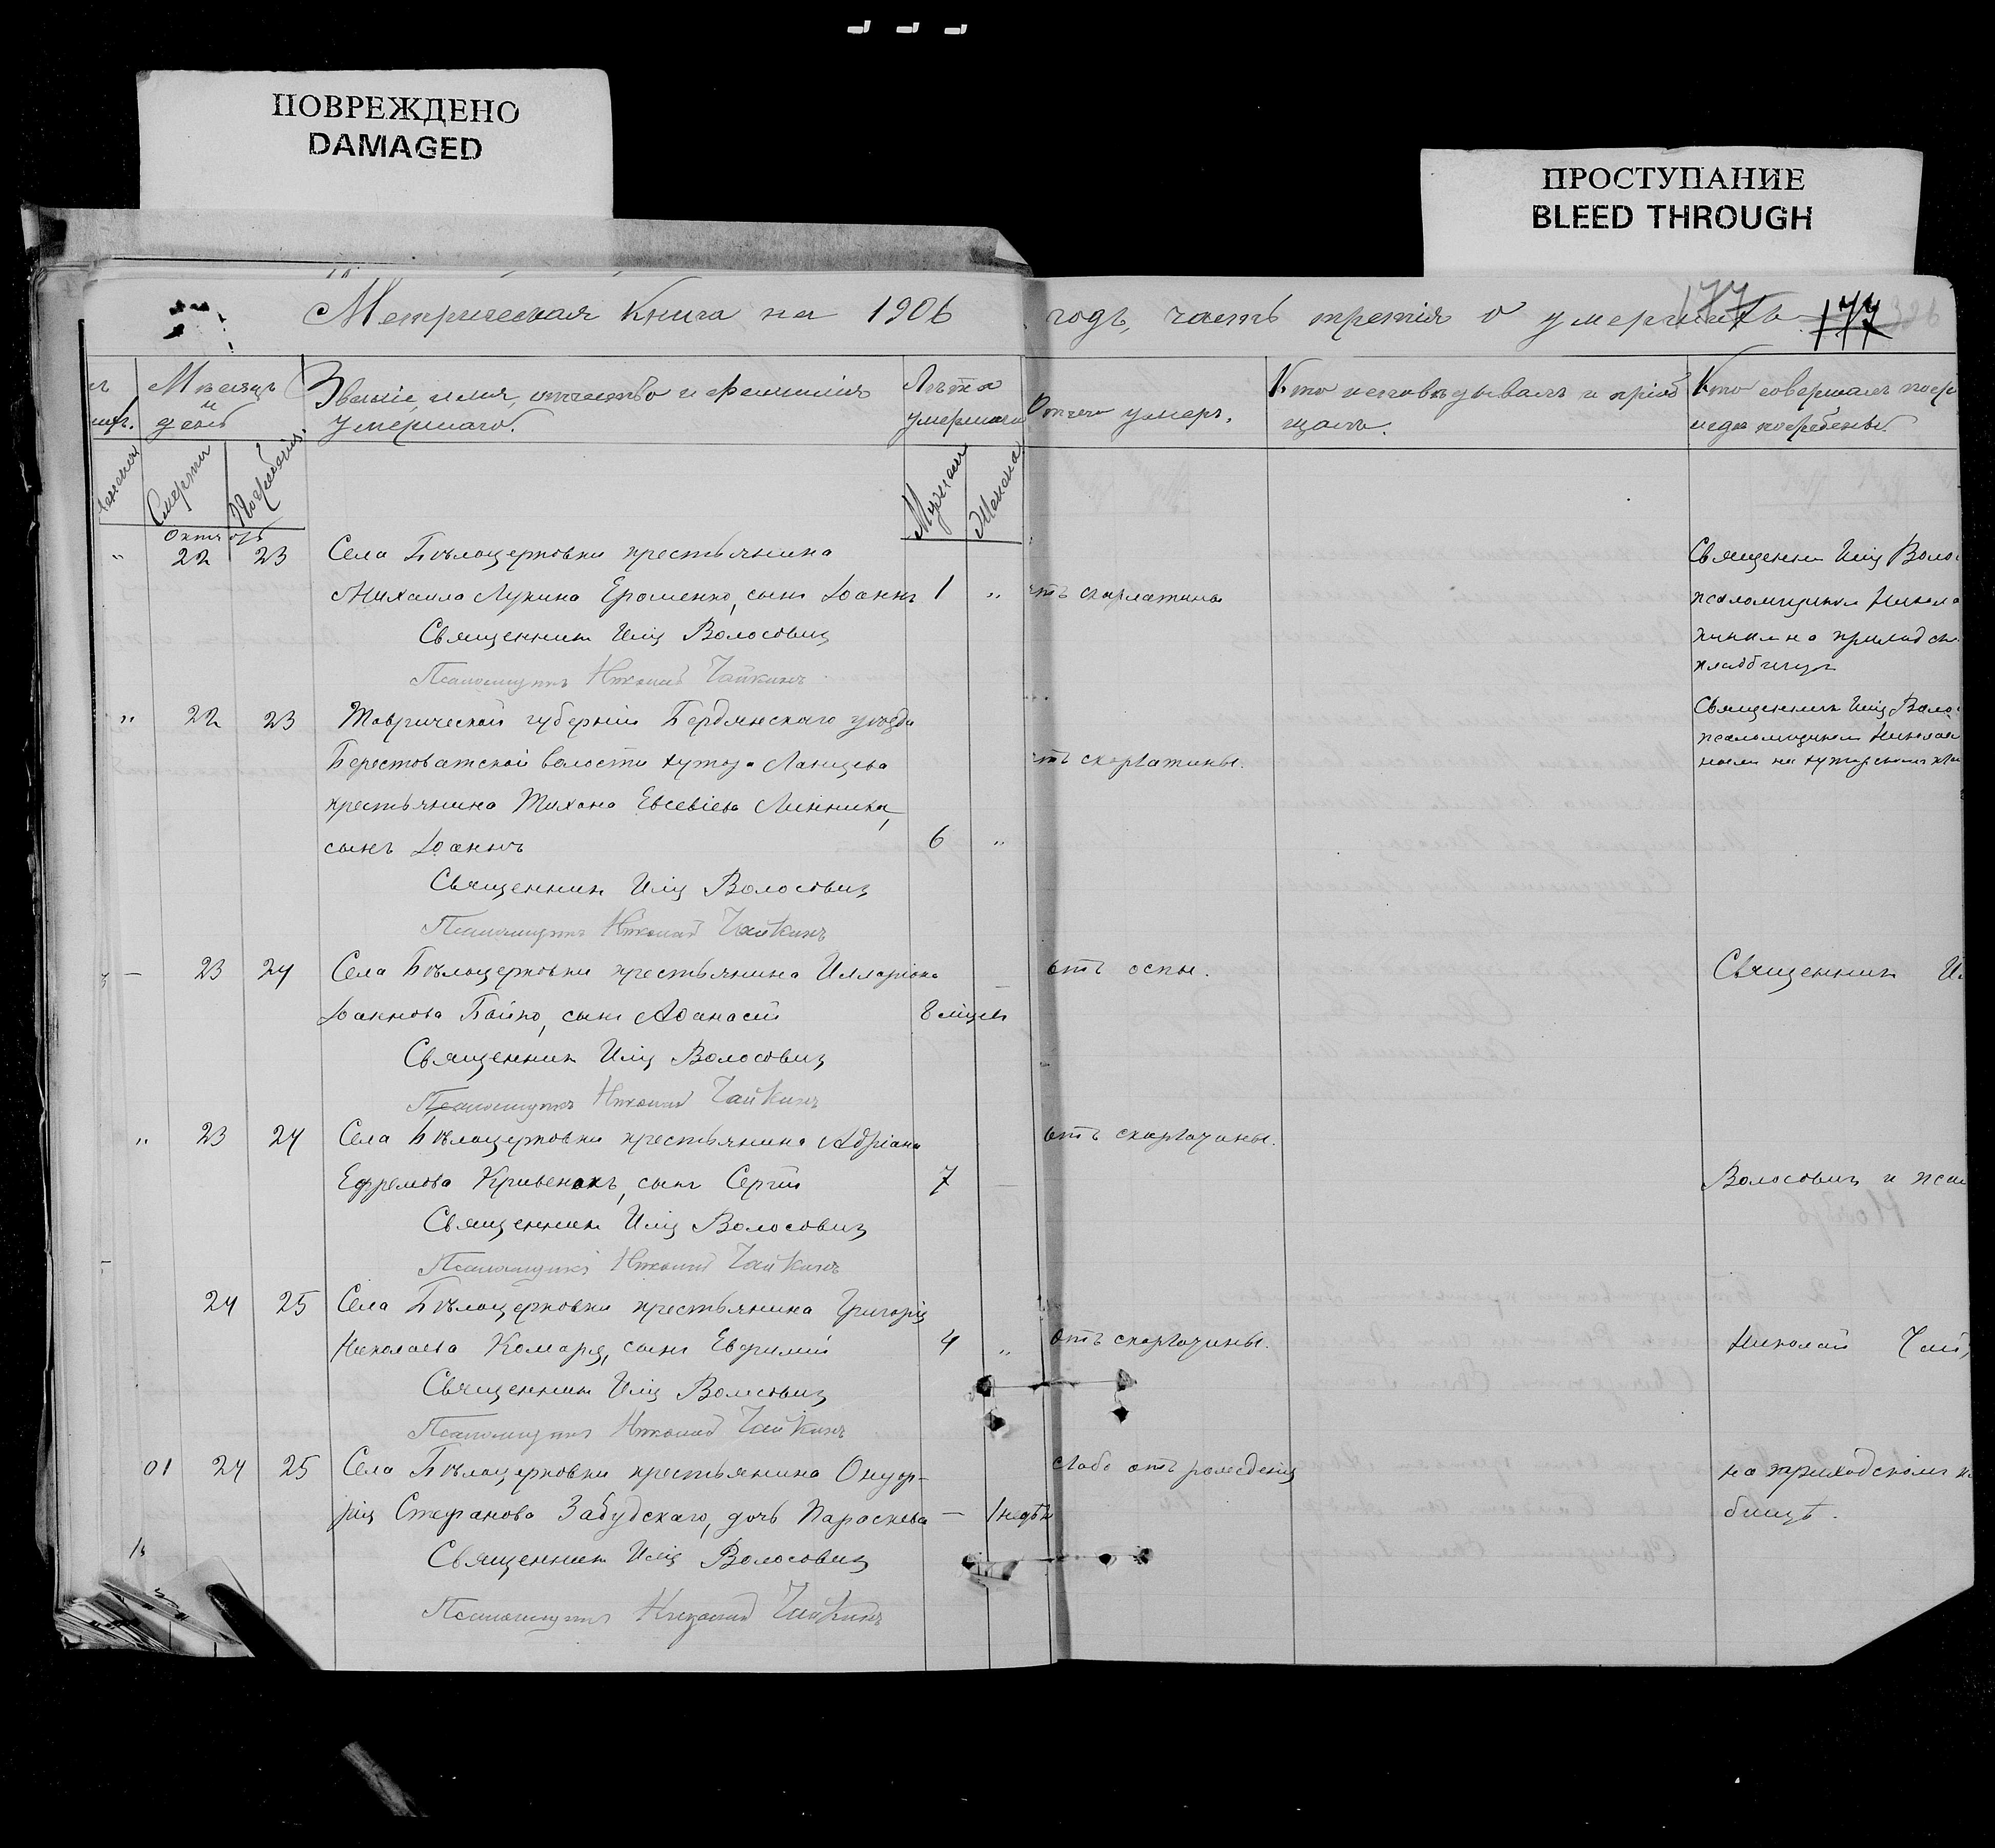 ПОВРЕЖДЕНО
DAMAGED
ПРОСТУПАНИЕ
BLEED THROUGH
Метрическая Книга на 1906
годъ, часть третія о умершихъ
177
177
Мѣсяцъ
и
день
Званіе, имя, отчество и фамилія
умершаго.
Лѣта
умершаго
Отчего умеръ.
Кто исповѣдывалъ и пріоб
щалъ.
Кто совершалъ погр
и гдѣ погребены.
Смерти
Погребенія.
Мужчинъ
Женщинъ
Октябрь
" 22 23 Села Бѣлоцерковки крестьянина
Михаила Лукина Ерошенко, сынъ Іоаннъ 1 "
отъ скарлатины
Священникъ Илія Волосовичъ
Псаломщикъ Николай Чайкинъ
Священник Илія Воло
псаломщиком Никола
на приходск
кладбищѣ
" 22 23 Таврической губерніи Бердянскаго уѣзда
Берестоватской волости хутора Ланцева
крестьянина Тихона Евсевіева Линника,
сынъ Іоаннъ 6 "
отъ скарлатины.
Священникъ Илія Волосовичъ
Псаломщикъ Николай Чайкинъ
Священникъ Илія Воло
псаломщиком Николаем
на хуторскомъ кла
— 23 24 Села Бѣлоцерковки крестьянина Илларіона
Іоаннова Бойко, сынъ Аѳанасій 8 мцев
отъ оспы.
Священникъ Илія Волосовичъ
Псаломщикъ Николай Чайкинъ
Священникъ И
" 23 24 Села Бѣлоцерковки крестьянина Адріана
Ефремова Кривенокъ, сынъ Сергій 7 —
отъ скарлатины.
Священникъ Илія Волосовичъ
Псаломщикъ Николай Чайкинъ
Волосовичъ и пса
24 25 Села Бѣлоцерковки крестьянина Григорія
Николаева Комаря, сынъ Евфимій 4 "
отъ скарлатины.
Священникъ Илія Волосовичъ
Псаломщикъ Николай Чайкинъ
Николай Чай
01 24 25 Села Бѣлоцерковки крестьянина Онуф-
рія Стефанова Забудскаго, дочь Параскева — 1 недѣл
слабо отъ рожденія
Священникъ Илія Волосовичъ
Псаломщикъ Николай Чайкинъ
на приходскомъ к
бищѣ.